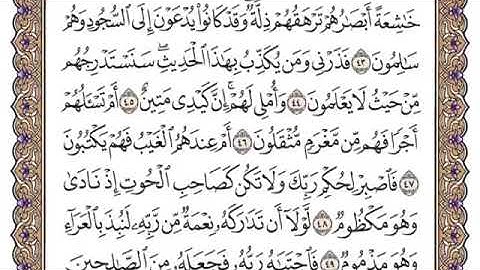 خَٰشِعَةً أَبْصَٰرُهُمْ تَرْهَقُهُمْ ذِلَّةٌ ۖ وَقَدْ كَانُوا۟ يُدْعَوْنَ إِلَى ٱلسُّجُودِ وَهُمْ
سَٰلِمُونَ ٤٣ فَذَرْنِى وَمَن يُكَذِّبُ بِهَٰذَا ٱلْحَدِيثِ ۖ سَنَسْتَدْرِجُهُم
مِّنْ حَيْثُ لَا يَعْلَمُونَ ٤٤ وَأُمْلِى لَهُمْ ۚ إِنَّ كَيْدِى مَتِينٌ ٤٥ أَمْ تَسْـَٔلُهُمْ
أَجْرًا فَهُم مِّن مَّغْرَمٍ مُّثْقَلُونَ ٤٦ أَمْ عِندَهُمُ ٱلْغَيْبُ فَهُمْ يَكْتُبُونَ
٤٧ فَٱصْبِرْ لِحُكْمِ رَبِّكَ وَلَا تَكُن كَصَاحِبِ ٱلْحُوتِ إِذْ نَادَىٰ
وَهُوَ مَكْظُومٌ ٤٨ لَّوْلَآ أَن تَدَٰرَكَهُۥ نِعْمَةٌ مِّن رَّبِّهِۦ لَنُبِذَ بِٱلْعَرَآءِ
وَهُوَ مَذْمُومٌ ٤٩ فَٱجْتَبَٰهُ رَبُّهُۥ فَجَعَلَهُۥ مِنَ ٱلصَّٰلِحِينَ